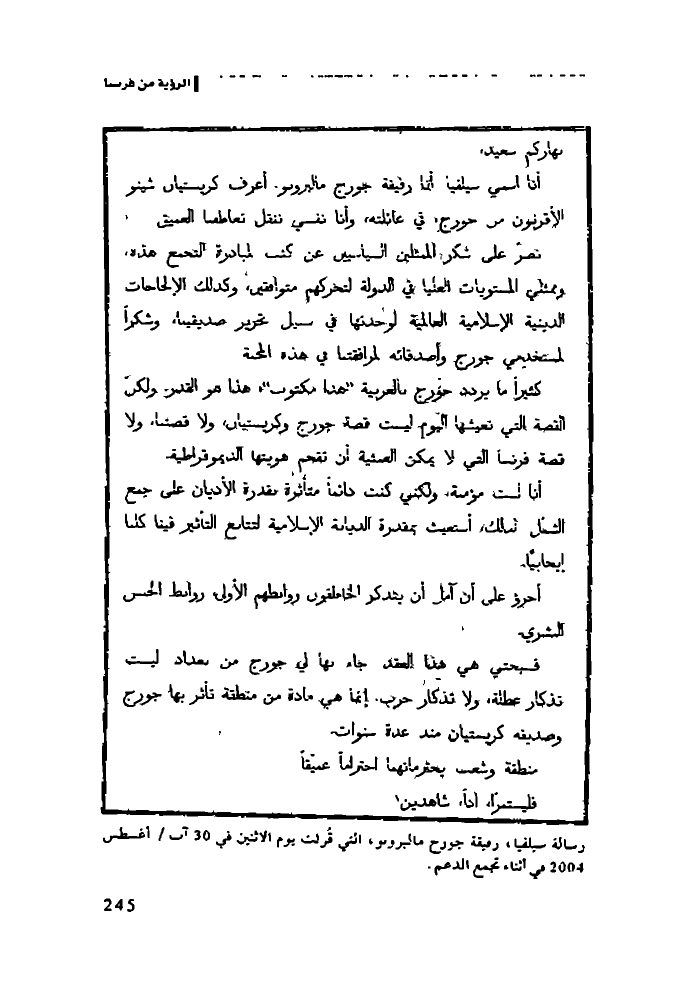 الرؤية من فرنسا
نهاركم سعيد،
أنا اسمي سيلفيا أنا رفيقة جورج مالبرونو. أعرف كريستيان شينو
الأقربون من جورج، في عائلته، وأنا نفسي ننقل تعاطفنا العميق
نصرّ على شكر الممثلين السياسيين عن كثب لمبادرة التجمع هذه،
وممثلي المستويات العليا في الدولة لتحركهم متوافقين، وكذلك الإلحاحات
الدينية الإسلامية العالمية لوحدتها في سبيل تحرير صديقينا، وشكراً
لمستخدِمي جورج وأصدقائه لمرافقتنا في هذه المحنة
كثيراً ما يردد جورج بالعربية "هذا مكتوب"، هذا هو القدر. ولكنّ
القصة التي نعيشها اليوم ليست قصة جورج وكريستيان، ولا قصتنا، ولا
قصة فرنسا التي لا يمكن العشية أن تقحم هويتها الديموقراطية.
أنا لست مؤمنة، ولكني كنت دائماً متأثرة بقدرة الأديان على جمع
الشمل لذلك، أستغيث بمقدرة الديانة الإسلامية لتتابع التأثير فينا كلنا
إيجابيًّا.
أجرؤ على أن آمل أن يتذكر الخاطفون روابطهم الأولى، روابط الجنس
البشري.
قسبحتي هي هذا العقد جاء بها لي جورج من بغداد ليست
تذكار عطلة، ولا تذكار حرب. إنما هي مادة من منطقة تأثر بها جورج
وصديقه كريستيان منذ عدة سنوات.
منطقة وشعب يحترمانهما احتراماً عميقاً
فليستمرّا، أبداً، شاهدين!
رسالة سيلفيا، رفيقة جورج مالبرونو، التي قُرئت يوم الاثنين في 30 آب / أغسطس
2004 في أثناء تجمع الدعم.
245